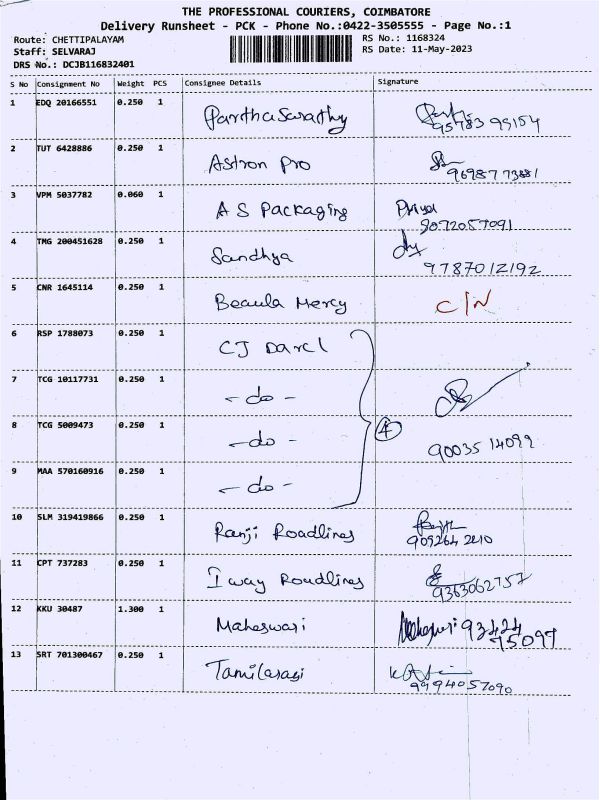 THE PROFESSIONAL COURIERS, COIMBATORE
Delivery Runsheet - PCK - Phone No.:0422-3505555 - Page No.:1
Route: CHETTIPALAYAM RS No.: 1168324
Staff: SELVARAJ RS Date: 11-May-2023
DRS No.: DCJB116832401
S No Consignment No Weight PCS Consignee Details Signature
1 EDQ 20166551 0.250 1 Parthasarathy
95783 95154
2 TUT 6428886 0.250 1 Astron Pro
96987 73881
3 VPM 5037782 0.060 1 A S Packaging Priya
9072057091
4 TMG 200451628 0.250 1 Sandhya
9787012192
5 CNR 1645114 0.250 1 Beaula Mercy C/N
6 RSP 1788073 0.250 1 CJ Darcl
7 TCG 10117731 0.250 1 - do -
8 TCG 5009473 0.250 1 - do - 4
90035 14099
9 MAA 570160916 0.250 1 - do -
10 SLM 319419866 0.250 1 Ranji Roadlines
909264 2410
11 CPT 737283 0.250 1 I way Roadlines
9363062757
12 KKU 30487 1.300 1 Maheswari 93424
75097
13 SRT 701300467 0.250 1 Tamilarasi
9994057090